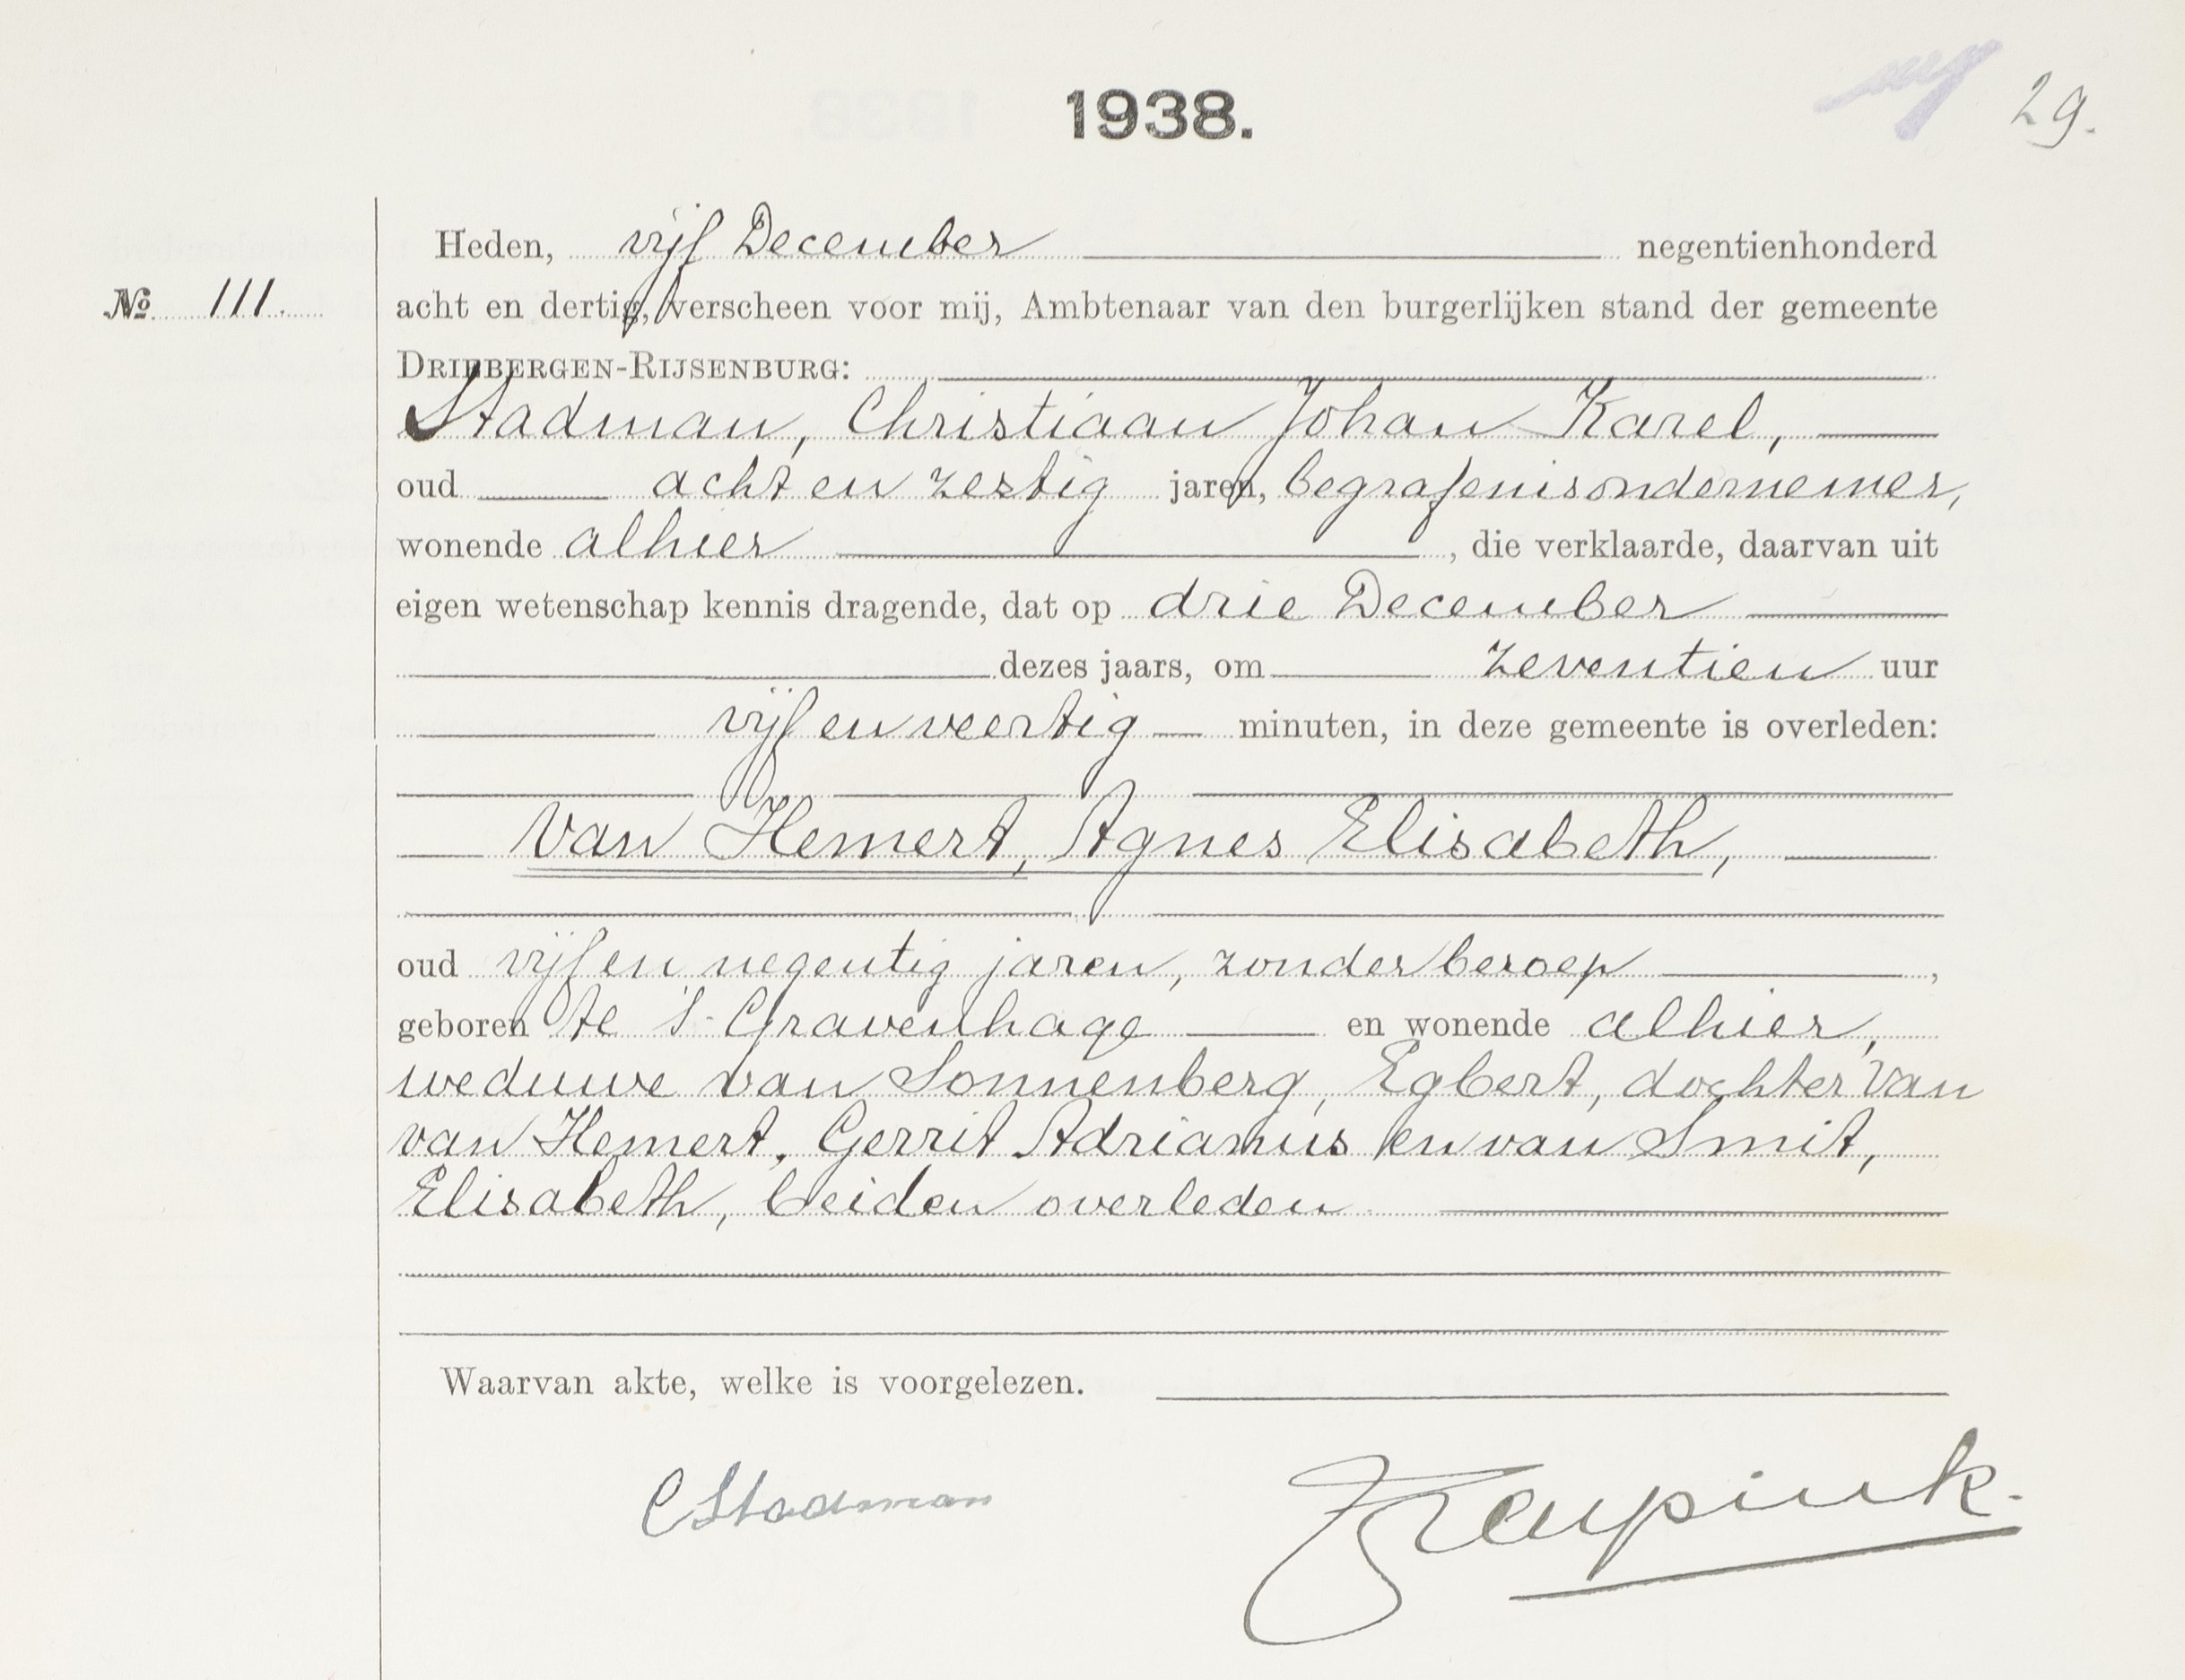 1938.
29.
Heden, vijf December negentienhonderd
No 111.
acht en dertig, verscheen voor mij, Ambtenaar van den burgerlijken stand der gemeente
DRIEBERGEN-RIJSENBURG:
Stadman, Christiaan Johan Karel,
oud acht en zestig jaren, begrafenisondernemer,
wonende alhier , die verklaarde, daarvan uit
eigen wetenschap kennis dragende, dat op drie December
dezes jaars, om zeventien uur
vijf en veertig minuten, in deze gemeente is overleden:
van Hemert, Agnes Elisabeth,
oud vijf en negentig jaren, zonder beroep ,
geboren te 's-Gravenhage en wonende alhier,
weduwe van Sonnenberg, Egbert, dochter van
van Hemert, Gerrit Adrianus en van Smit,
Elisabeth, beiden overleden
Waarvan akte, welke is voorgelezen.
C Stadman